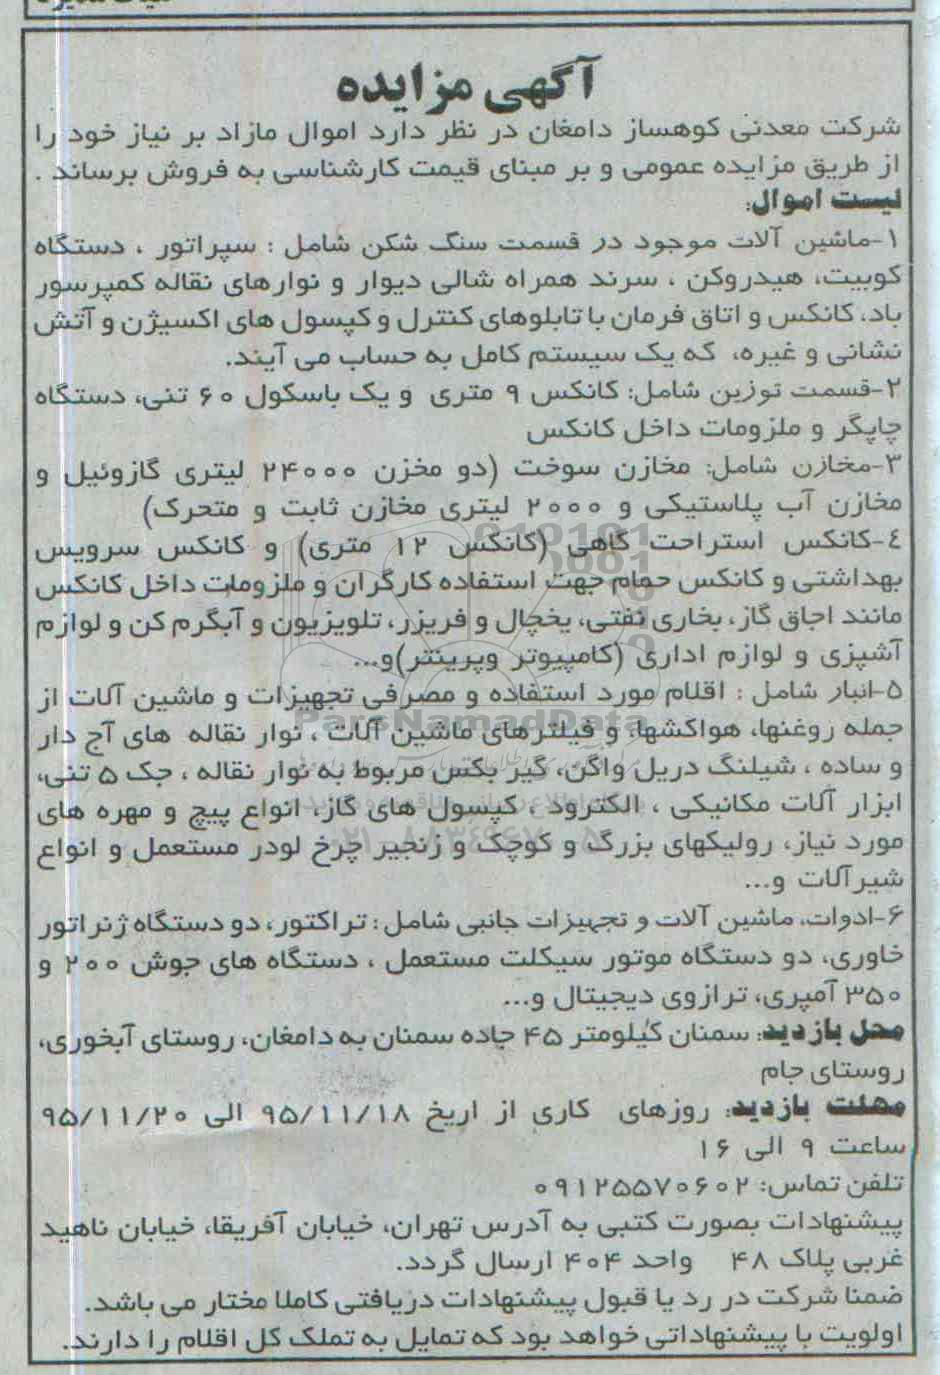 آگهی مزایده
شرکت معدنی کوهساز دامغان در نظر دارد اموال مازاد بر نیاز خود را
از طریق مزایده عمومی و بر مبنای قیمت کارشناسی به فروش برساند .
لیست اموال:
۱-ماشین آلات موجود در قسمت سنگ شکن شامل : سپراتور ، دستگاه
کوبیت، هیدروکن ، سرند همراه شالی دیوار و نوارهای نقاله کمپرسور
باد، کانکس و اتاق فرمان با تابلوهای کنترل و کپسول های اکسیژن و آتش
نشانی و غیره، که یک سیستم کامل به حساب می آیند.
۲-قسمت توزین شامل: کانکس ۹ متری و یک باسکول ۶۰ تنی، دستگاه
چاپگر و ملزومات داخل کانکس
۳-مخازن شامل: مخازن سوخت (دو مخزن ۲۴۰۰۰ لیتری گازوئیل و
مخازن آب پلاستیکی و ۲۰۰۰ لیتری مخازن ثابت و متحرک)
٤-کانکس استراحت گاهی (کانکس ۱۲ متری) و کانکس سرویس
بهداشتی و کانکس حمام جهت استفاده کارگران و ملزومات داخل کانکس
مانند اجاق گاز، بخاری نفتی، یخچال و فریزر، تلویزیون و آبگرم کن و لوازم
آشپزی و لوازم اداری (کامپیوتر وپرینتر)و...
۵-انبار شامل : اقلام مورد استفاده و مصرفی تجهیزات و ماشین آلات از
جمله روغنها، هواکشها، و فیلترهای ماشین آلات ، نوار نقاله های آج دار
و ساده ، شیلنگ دریل واگن، گیر بکس مربوط به نوار نقاله ، جک ۵ تنی،
ابزار آلات مکانیکی ، الکترود ، کپسول های گاز، انواع پیچ و مهره های
مورد نیاز، رولیکهای بزرگ و کوچک و زنجیر چرخ لودر مستعمل و انواع
شیرآلات و...
۶-ادوات، ماشین آلات و تجهیزات جانبی شامل : تراکتور، دو دستگاه ژنراتور
خاوری، دو دستگاه موتور سیکلت مستعمل ، دستگاه های جوش ۲۰۰ و
۳۵۰ آمپری، ترازوی دیجیتال و...
محل بازدید: سمنان کیلومتر ۴۵ جاده سمنان به دامغان، روستای آبخوری،
روستای جام
مهلت بازدید: روزهای کاری از اریخ ۹۵/۱۱/۱۸ الی ۹۵/۱۱/۲۰
ساعت ۹ الی ۱۶
تلفن تماس: ۰۹۱۲۵۵۷۰۶۰۲
پیشنهادات بصورت کتبی به آدرس تهران، خیابان آفریقا، خیابان ناهید
غربی پلاک ۴۸ واحد ۴۰۴ ارسال گردد.
ضمنا شرکت در رد یا قبول پیشنهادات دریافتی کاملا مختار می باشد.
اولویت با پیشنهاداتی خواهد بود که تمایل به تملک کل اقلام را دارند.
ParsNamadData